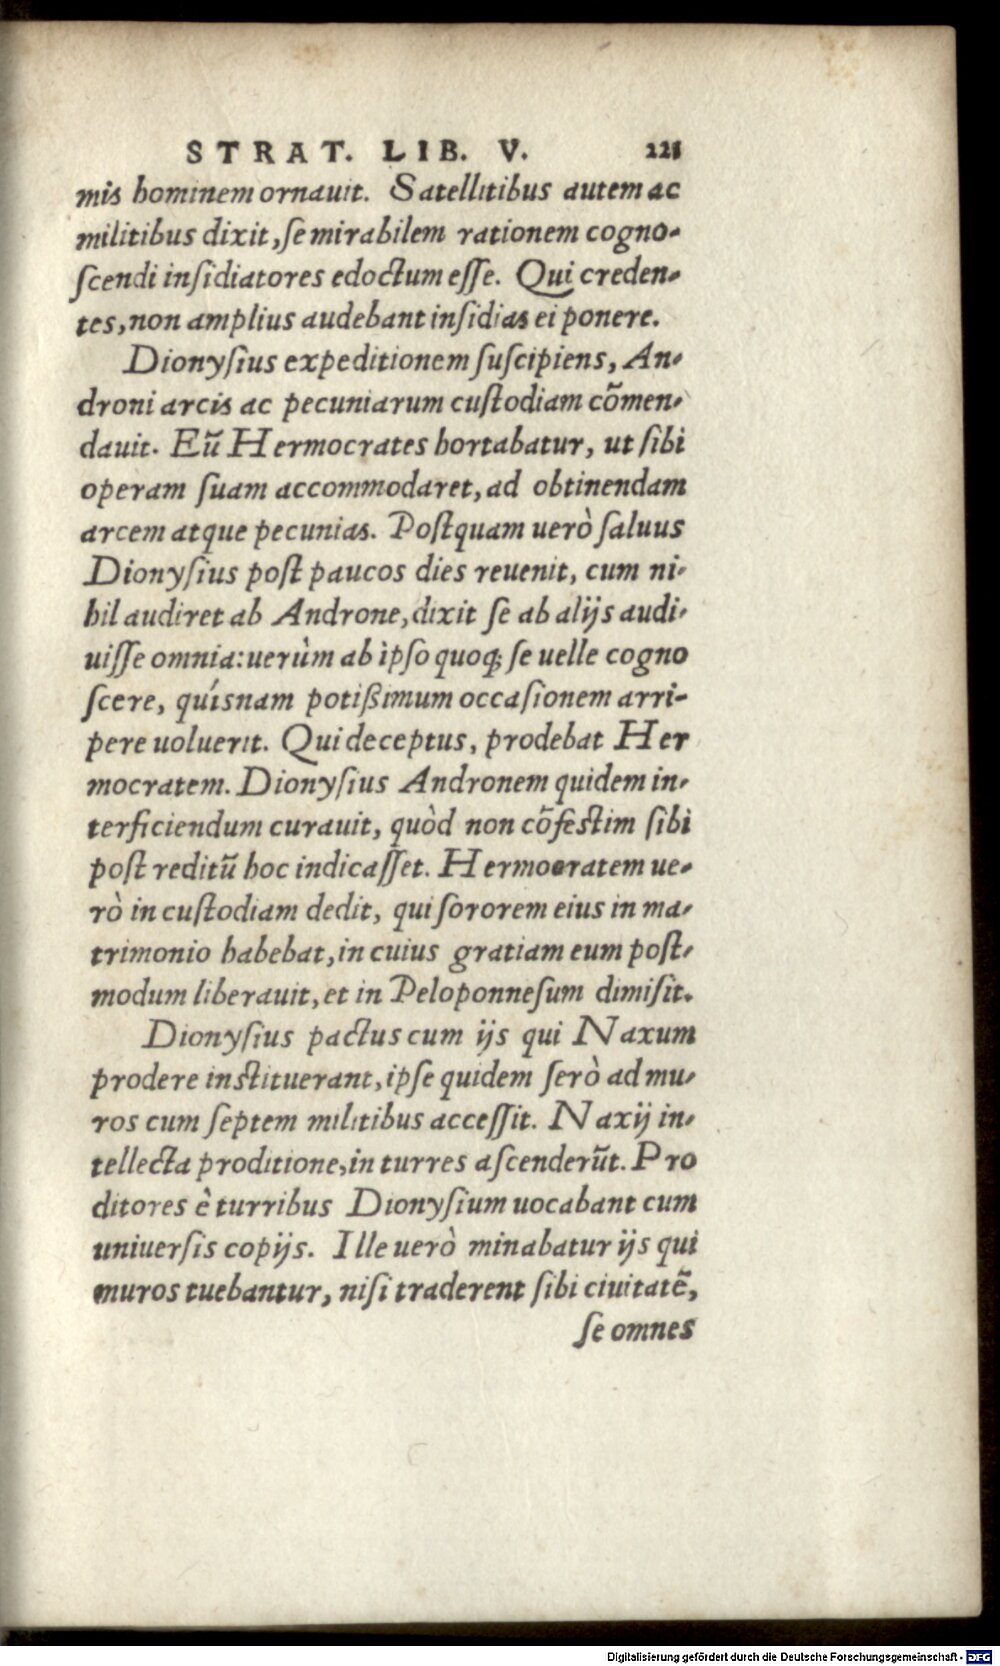 STRAT. LIB. V. 221
mis hominem ornauit. Satellitibus autem ac
militibus dixit, se mirabilem rationem cogno-
scendi insidiatores edoctum esse. Qui creden-
tes, non amplius audebant insidias ei ponere.
Dionysius expeditionem suscipiens, An-
droni arcis ac pecuniarum custodiam cõmen-
dauit. Eũ Hermocrates hortabatur, ut sibi
operam suam accommodaret, ad obtinendam
arcem atque pecunias. Postquam uerò saluus
Dionysius post paucos dies reuenit, cum ni-
hil audiret ab Androne, dixit se ab alijs audi-
uisse omnia: uerùm ab ipso quoq; se uelle cogno
scere, quísnam potißimum occasionem arri-
pere uoluerit. Qui deceptus, prodebat Her
mocratem. Dionysius Andronem quidem in-
terficiendum curauit, quòd non cõfestim sibi
post reditũ hoc indicasset. Hermocratem ue-
rò in custodiam dedit, qui sororem eius in ma-
trimonio habebat, in cuius gratiam eum post-
modum liberauit, et in Peloponnesum dimisit.
Dionysius pactus cum ijs qui Naxum
prodere instituerant, ipse quidem serò ad mu-
ros cum septem militibus accessit. Naxij in-
tellecta proditione, in turres ascenderũt. Pro
ditores è turribus Dionysium uocabant cum
uniuersis copijs. Ille uerò minabatur ijs qui
muros tuebantur, nisi traderent sibi ciuitatẽ,
se omnes
Digitalisierung gefördert durch die Deutsche Forschungsgemeinschaft - DFG